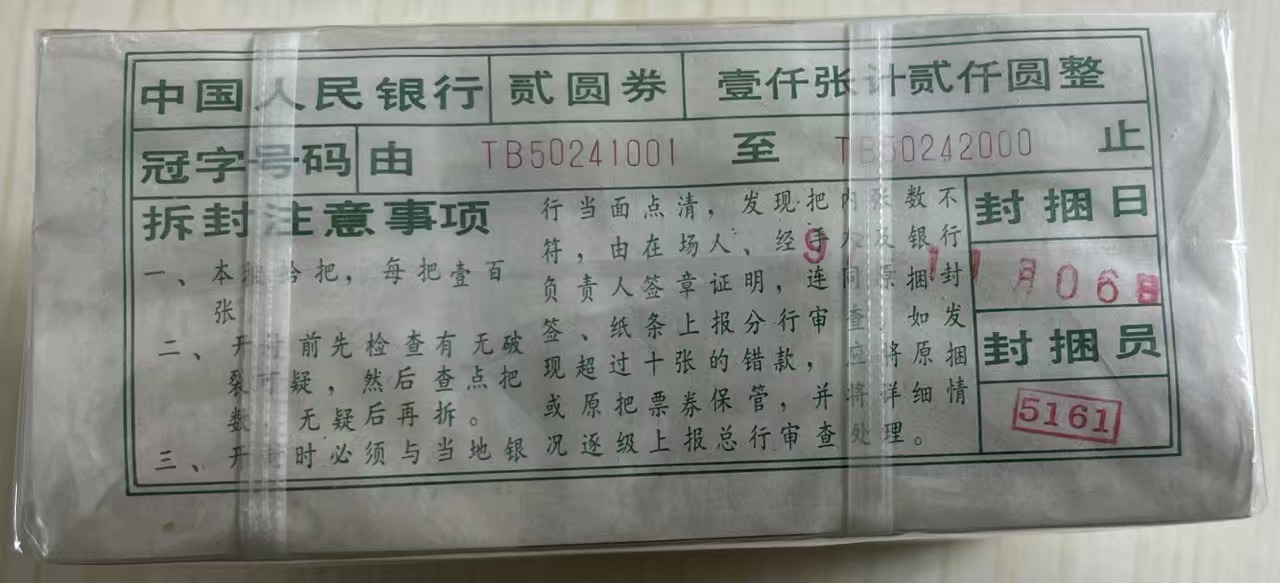 中国人民银行 贰圆券 壹仟张计贰仟圆整
冠字号码 由 TB50241001 至 TB50242000 止
拆封注意事项
一、本捆拾把，每把壹百
张
二、开封前先检查有无破
裂可疑，然后查点把
数，无疑后再拆。
三、开封时必须与当地银
行当面点清，发现把内张数不
符，由在场人、经手人及银行
负责人签章证明，连同原捆封
签、纸条上报分行审查，如发
现超过十张的错款，应将原捆
或原把票券保管，并将详细情
况逐级上报总行审查处理。
封捆日
9 11月06日
封捆员
5161